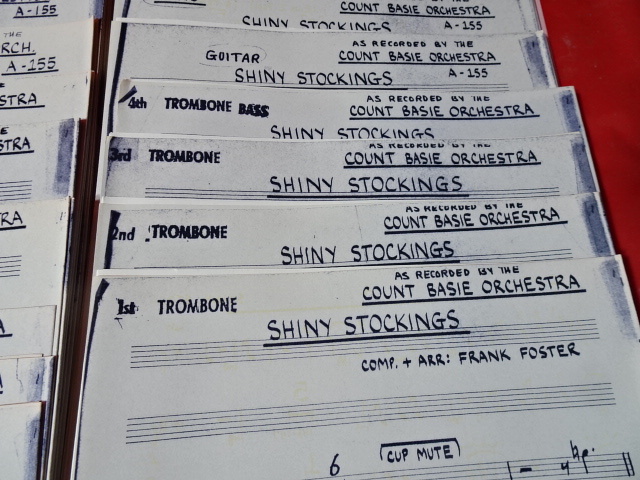 A-155
THE
RCH.
A-155
STRA
STRA
RA
COUNT BASIE ORCHESTRA
SHINY STOCKINGS A-155
AS RECORDED BY THE
GUITAR COUNT BASIE ORCHESTRA
SHINY STOCKINGS A-155
AS RECORDED BY THE
4th TROMBONE BASS COUNT BASIE ORCHESTRA
SHINY STOCKINGS
AS RECORDED BY THE
3rd TROMBONE COUNT BASIE ORCHESTRA
SHINY STOCKINGS
AS RECORDED BY THE
2nd TROMBONE COUNT BASIE ORCHESTRA
SHINY STOCKINGS
AS RECORDED BY THE
1st TROMBONE COUNT BASIE ORCHESTRA
SHINY STOCKINGS
COMP. + ARR: FRANK FOSTER
6 CUP MUTE